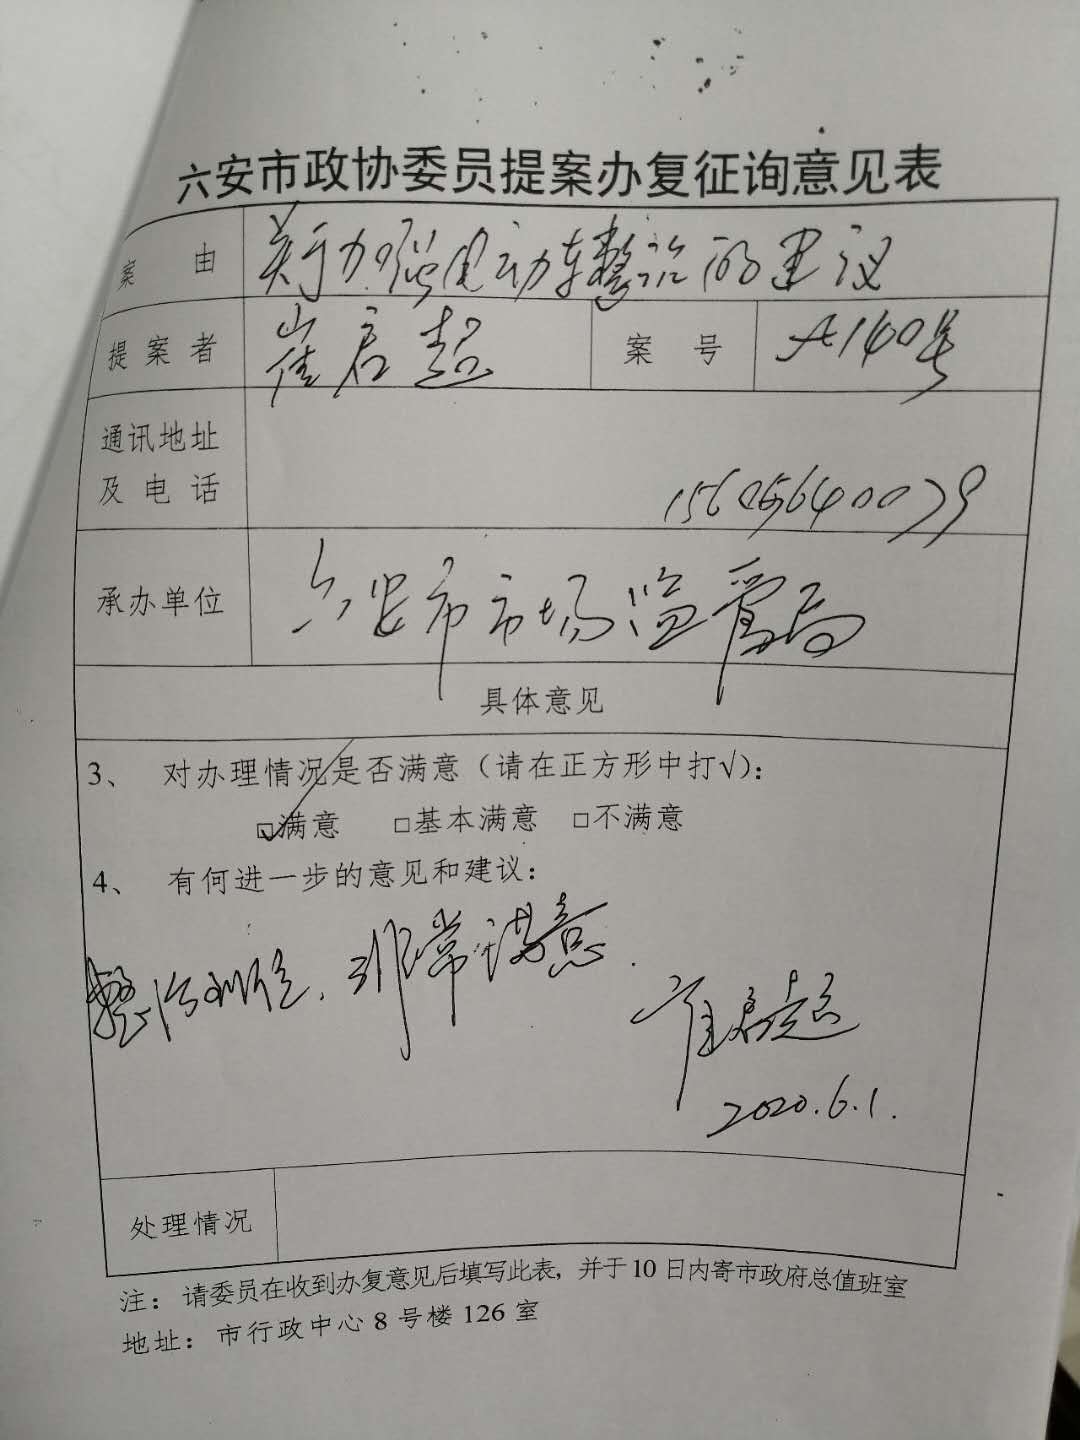 六安市政协委员提案办复征询意见表
案 由 关于加强电动车整治的建议
提案者 崔启超 案 号 A140号
通讯地址
及电话 15605640079
承办单位 六安市市场监管局
具体意见
3、 对办理情况是否满意（请在正方形中打√）：
☑满意 □基本满意 □不满意
4、 有何进一步的意见和建议：
整治到位，非常满意.
崔启超
2020.6.1.
处理情况
注： 请委员在收到办复意见后填写此表，并于10日内寄市政府总值班室
地址： 市行政中心8号楼126室